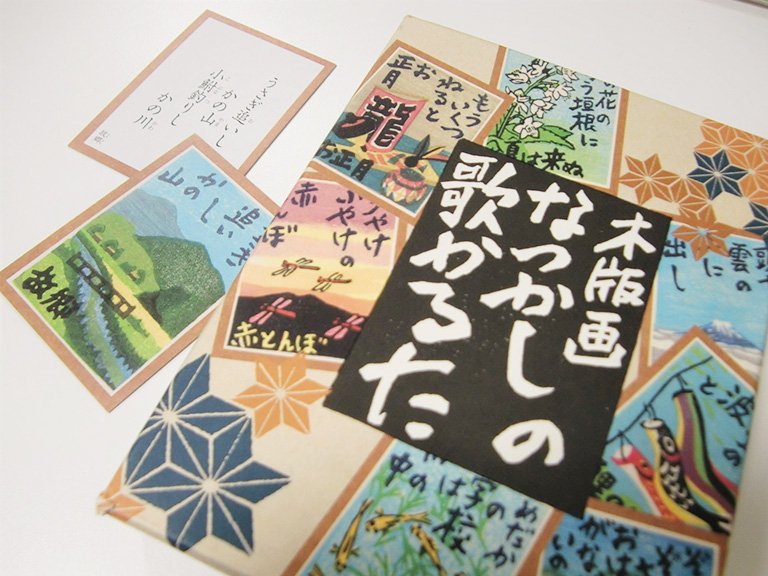 うさぎ追いし
かの山
小鮒釣りし
かの川
故郷
うさぎ
追いし
かの
山
故郷
もう
いくつ
ねると
お
正月
お正月
花の
う垣根に
来ぬ
夏は
木版画
なつかしの
歌かるた
やけ
やけの
赤
赤とんぼ
雲の
に
出し
波の
と
めだか
の
学校
は
川の
中
ぞうさん
ぞうさん
おはな
がな